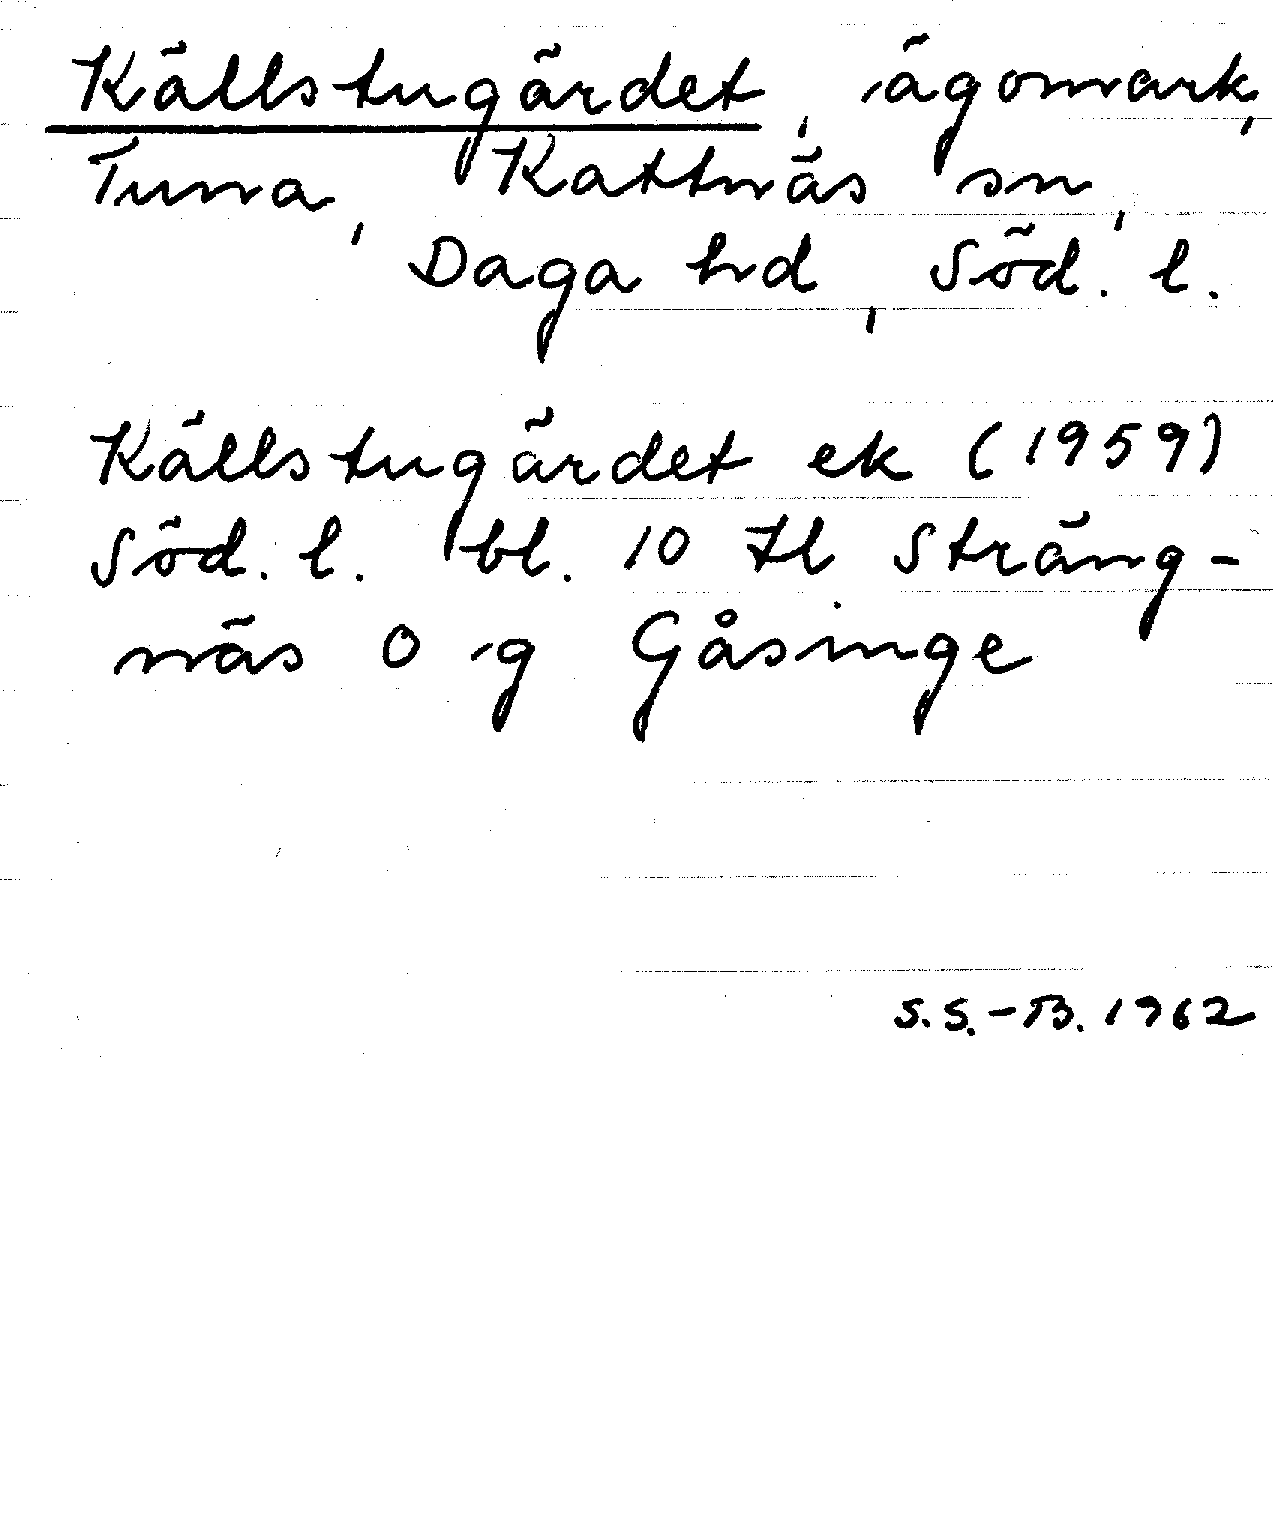 Källstugärdet, ägomark,
Tuna, Kattnäs sn,
Daga hd, Söd. l.
Källstugärdet ek (1959)
Söd. l. bl. 10 Il Sträng-
näs O g Gåsinge
S.S.-B. 1962